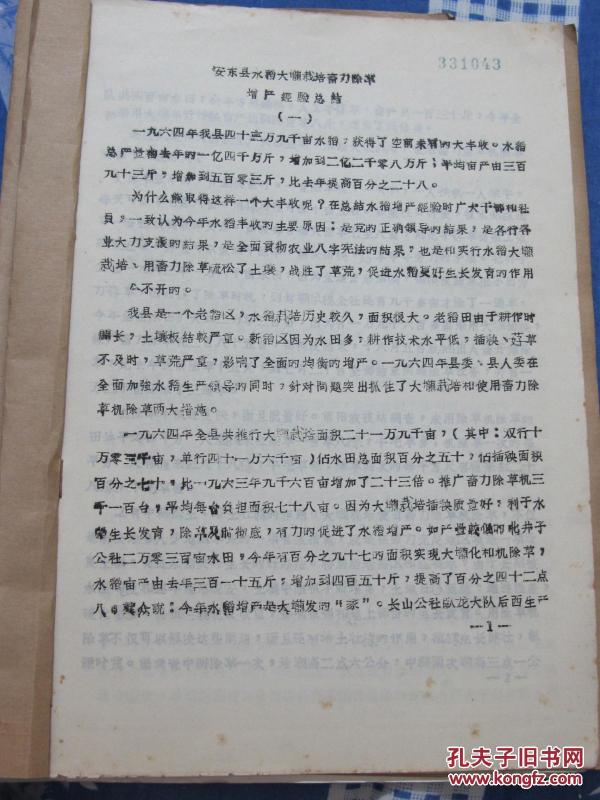 331043
安东县水稻大垅栽培畜力除草
增产经验总结
（一）
一九六四年我县四十三万九千亩水稻，获得了空前未有的大丰收。水稻
总产量由去年的一亿四千万斤，增加到二亿二千零八万斤；平均亩产由三百
九十三斤，增加到五百零三斤，比去年提高百分之二十八。
为什么能取得这样一个大丰收呢？在总结水稻增产经验时广大干部和社
员，一致认为今年水稻丰收的主要原因：是党的正确领导的结果，是各行各
业大力支援的结果，是全面贯彻农业八字宪法的结果，也是和实行水稻大垅
栽培、用畜力除草疏松了土壤，战胜了草荒，促进水稻良好生长发育的作用
分不开的。
我县是一个老稻区，水稻栽培历史较久，面积很大。老稻田由于耕作时
间长，土壤板结较严重。新稻区因为水田多，耕作技术水平低，插秧、薅草
不及时，草荒严重，影响了全面的均衡的增产。一九六四年县委、县人委在
全面加强水稻生产领导的同时，针对问题突出抓住了大垅栽培和使用畜力除
草机除草两大措施。
一九六四年全县共推行大垅栽培面积二十一万九千亩，（其中：双行十
万零三千亩，单行 十一万六千亩）佔水田总面积百分之五十，佔插秧面积
百分之七十，比一九六三年九千六百亩增加了二十三倍。推广畜力除草机三
千一百台，平均每台负担面积七十八亩。因为大垅栽培插秧质量好，利于水
稻生长发育，除草及时彻底，有力的促进了水稻增产。如产量较低的北井子
公社二万零三百亩水田，今年有百分之九十七的面积实现大垅化和机除草，
水稻亩产由去年三百一十五斤，增加到四百五十斤，提高了百分之四十二点
八。群众说：今年水稻增产是大垅发的“家”。长山公社卧龙大队后西生产
—1—
孔夫子旧书网
www.kongfz.com